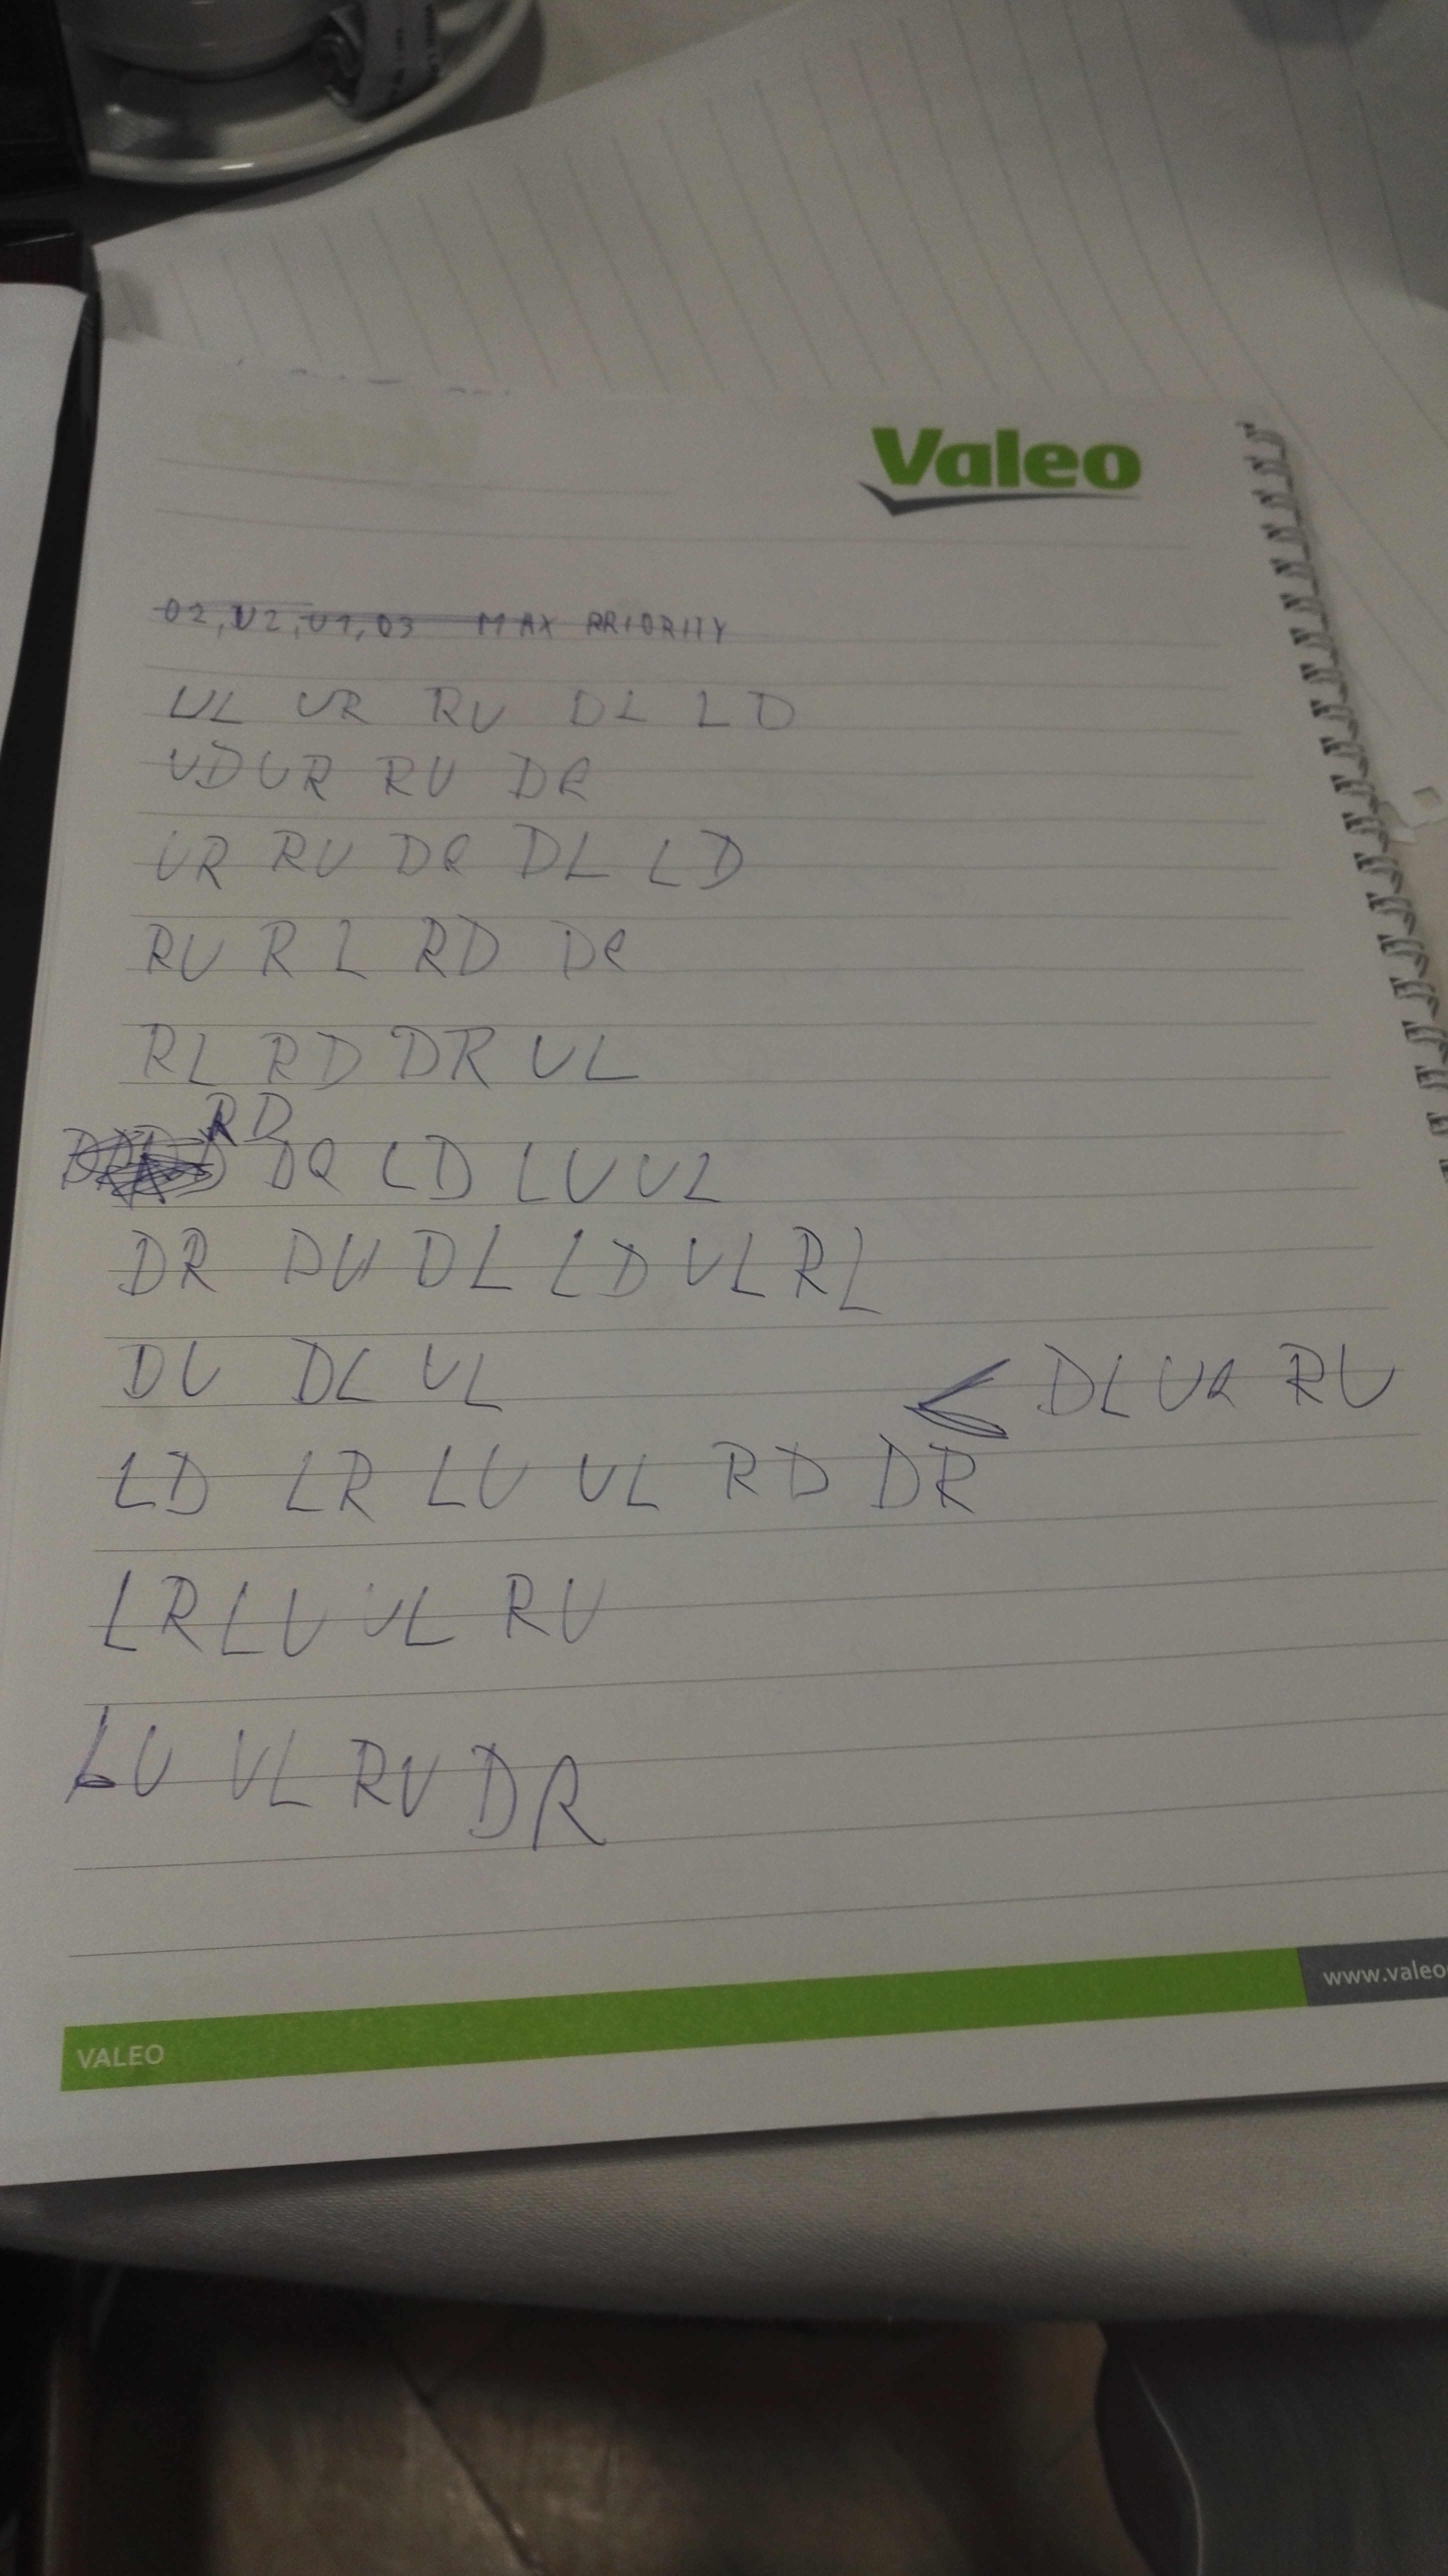 Valeo
02, U2, U1, 03 MAX PRIORITY
UL UR RU DL LD
UD UR RU DR
UR RU DR DL LD
RU RL RD DR
RL RD DR UL
RD
DR LD LU UL
DR DU DL LD UL RL
DU DL UL < DL UR RU
LD LR LU UL RD DR
LR LU UL RU
LU UL RU DR
VALEO
www.valeo